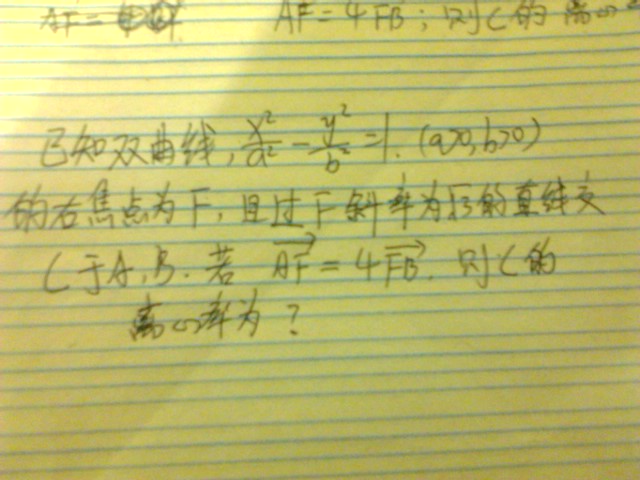 AF = 4FB; 则C的 离心
已知双曲线, x²/a² - y²/b² = 1. (a>0, b>0)
的右焦点为F, 且过F斜率为√3的直线交
C于A、B. 若 AF = 4FB. 则C的
离心率为?